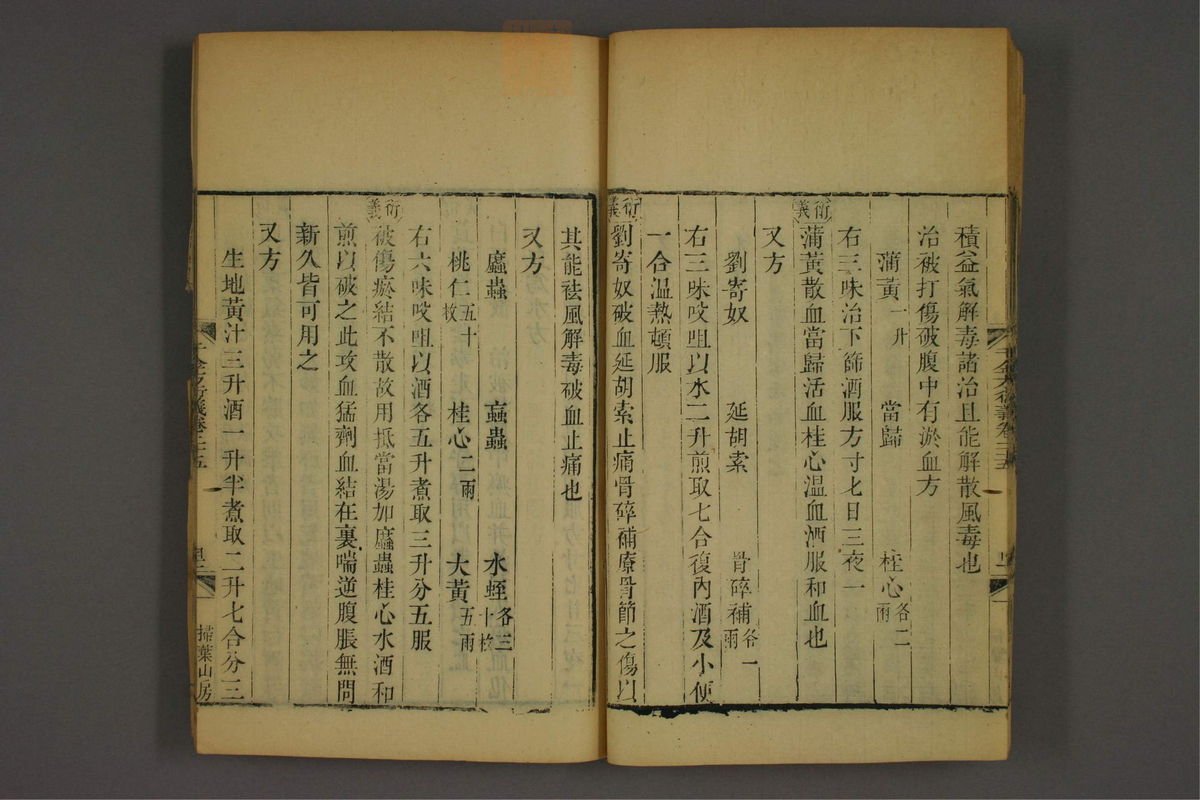 積益氣解毒諸治且能解散風毒也
治被打傷破腹中有淤血方
蒲黃一升 當歸 桂心各二兩
右三味治下篩酒服方寸七日三夜一
衍義
蒲黃散血當歸活血桂心溫血酒服和血也
又方
劉寄奴 延胡索 骨碎補各一兩
右三味㕮咀以水二升煎取七合復內酒及小便
一合溫熱頓服
衍義
劉寄奴破血延胡索止痛骨碎補療骨節之傷以
其能祛風解毒破血止痛也
又方
䗪蟲 蝱蟲 水蛭各三十枚
桃仁五十枚 桂心二兩 大黃五兩
右六味㕮咀以酒各五升煮取三升分五服
衍義
被傷瘀結不散故用抵當湯加䗪蟲桂心水酒和
煎以破之此攻血猛劑血結在裏喘逆腹脹無問
新久皆可用之
又方
生地黃汁三升酒一升半煮取二升七合分三
千金方衍義卷二十五
掃葉山房